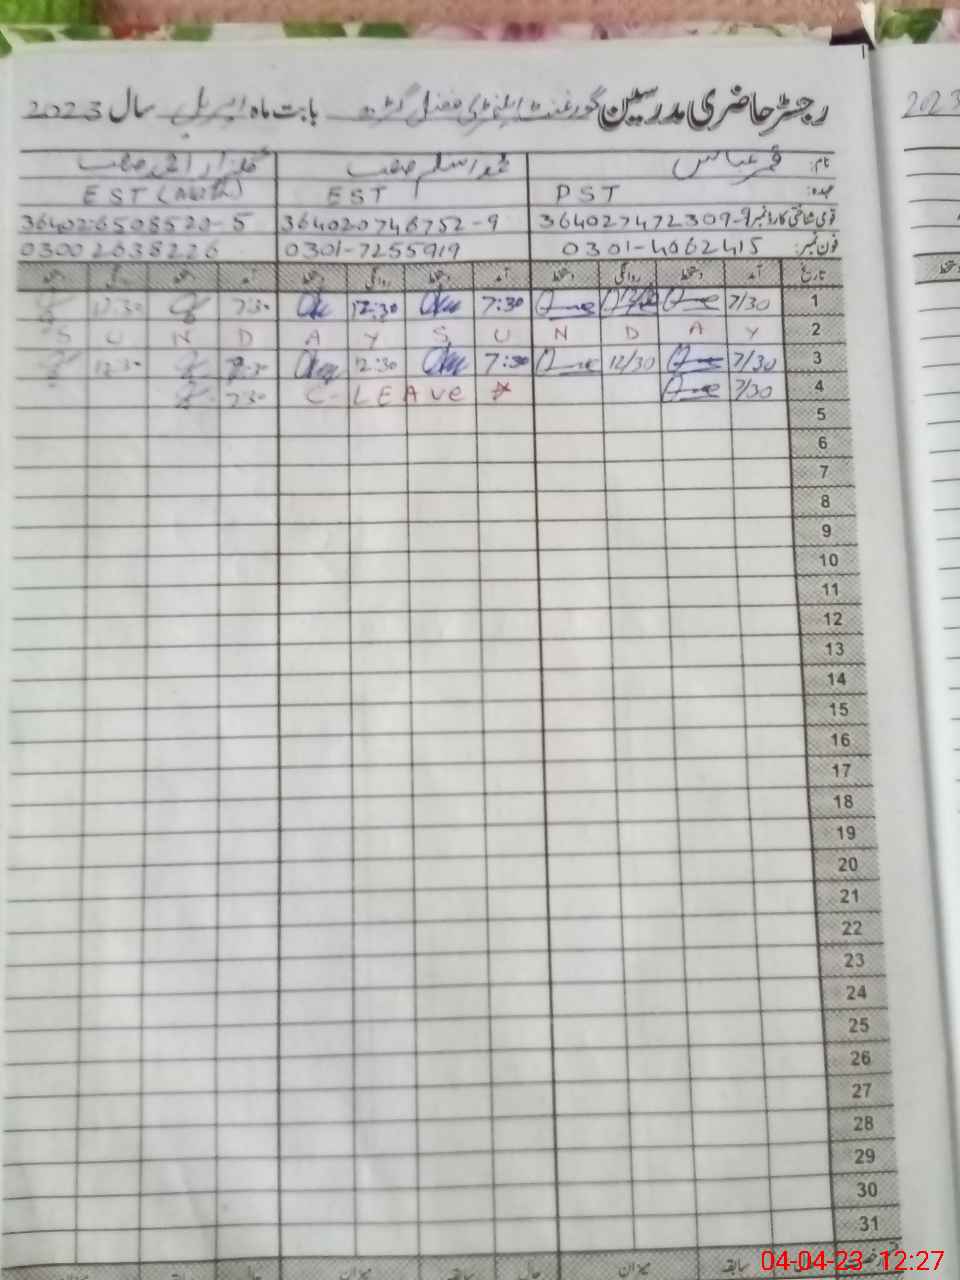 رجسٹر حاضری مدرسین گورنمنٹ ایلیمنٹری فضل گڑھ بابت ماہ اپریل سال 2023
نام: قمر عباس محمد اسلم صاحب گلزار احمد صاحب
عہدہ: PST EST EST
قومی شناختی کارڈ نمبر 364027472309-9 364020746752-9 3640226508520-5
فون نمبر: 0301-4062415 0301-7255919 03002638226
تاریخ آمد دستخط روانگی دستخط آمد دستخط روانگی دستخط آمد دستخط روانگی دستخط
1 7/30 7:30 12:30 7:30 12:30
2 Y A D N U S Y A D N U S
3 7/30 12/30 7:30 12:30 7:30 12:30
4 7/30 C-LEAVE 7:30
5
6
7
8
9
10
11
12
13
14
15
16
17
18
19
20
21
22
23
24
25
26
27
28
29
30
31
سابقہ حال میزان سابقہ حال میزان
04-04-23 12:27
2023